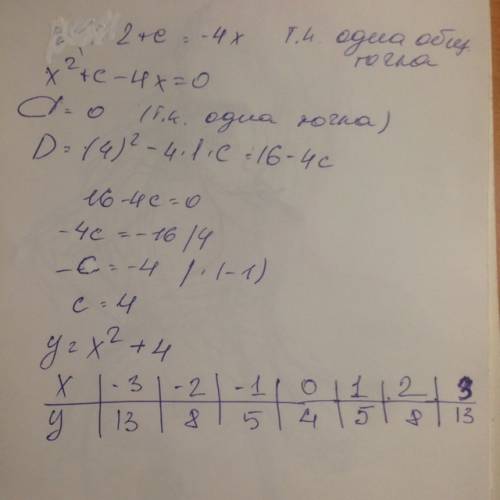 2+c = -4x т.к. одна общ
точка
x²+c-4x=0
D=0 (т.к. одна точка)
D=(4)²-4·1·c=16-4c
16-4c=0
-4c=-16/4
-c=-4 /·(-1)
c=4
y=x²+4
x | -3 | -2 | -1 | 0 | 1 | 2 | 3
y | 13 | 8 | 5 | 4 | 5 | 8 | 13